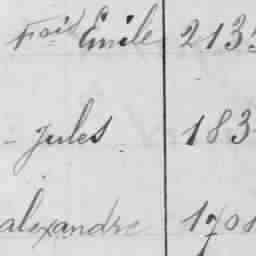 Foix Emile 213
- Jules 183
alexandre 1701